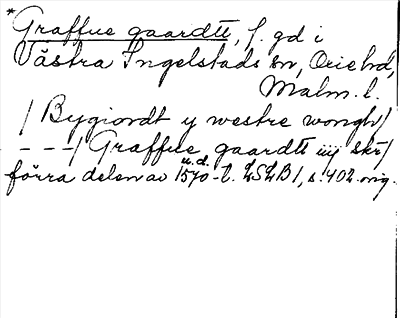 *Graffue gaardtt, f. gd i
Västra Ingelstads sn, Oxie hd,
Malm. l.
/Bygiordt y westre wongh/
---/Graffue gaardtt iiij skr/
u.d.
förra delen av 1570-t. LSLB1, s. 402. orig.